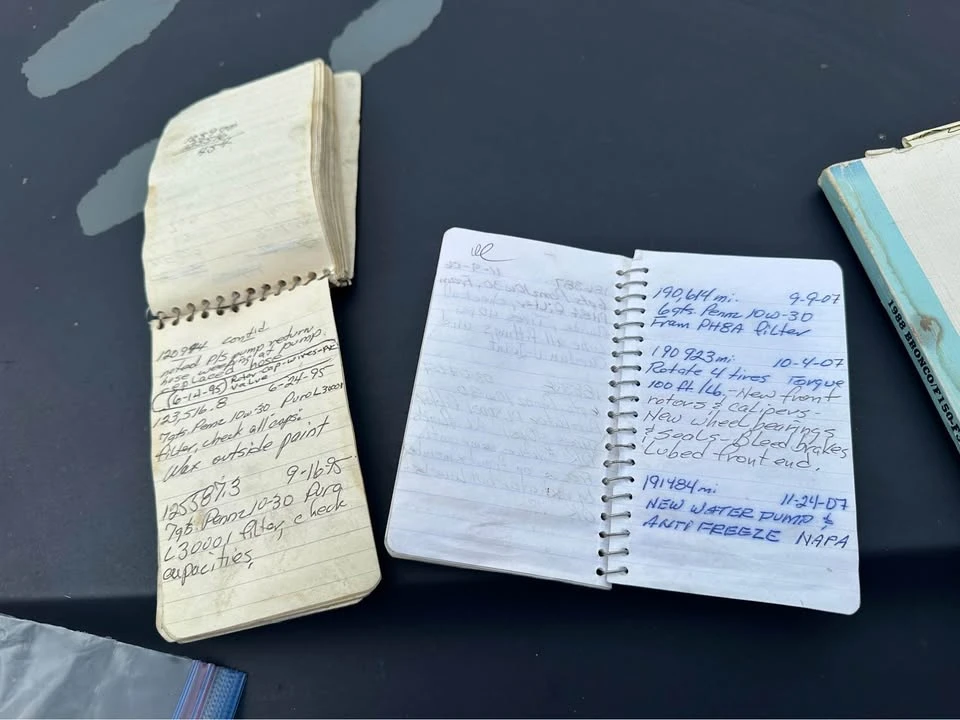 120994 cont'd
noted P/S pump return
hose weeping at pump.
replaced hose
(6-12-95) Rotor-cap-wires-PCV
valve 6-24-95
123,516.8
7qts. Penz 10w-30 Puro L30001
filter, check all caps.
Wax outside paint
125587.3 9-16-95
7qts. Penz 10-30 Puro
L30001 filter, check
capacities,
190,614 mi. 9-9-07
6qts. Penz 10w-30
Fram PH8A filter
190923mi 10-4-07
Rotate 4 tires Torque
100 ft/lb. - New front
rotors & calipers -
New wheel bearings
& Seals - Bleed brakes
Lubed front end.
191484mi 11-24-07
NEW WATER PUMP &
ANTIFREEZE NAPA
1988 BRONCO/F150-F